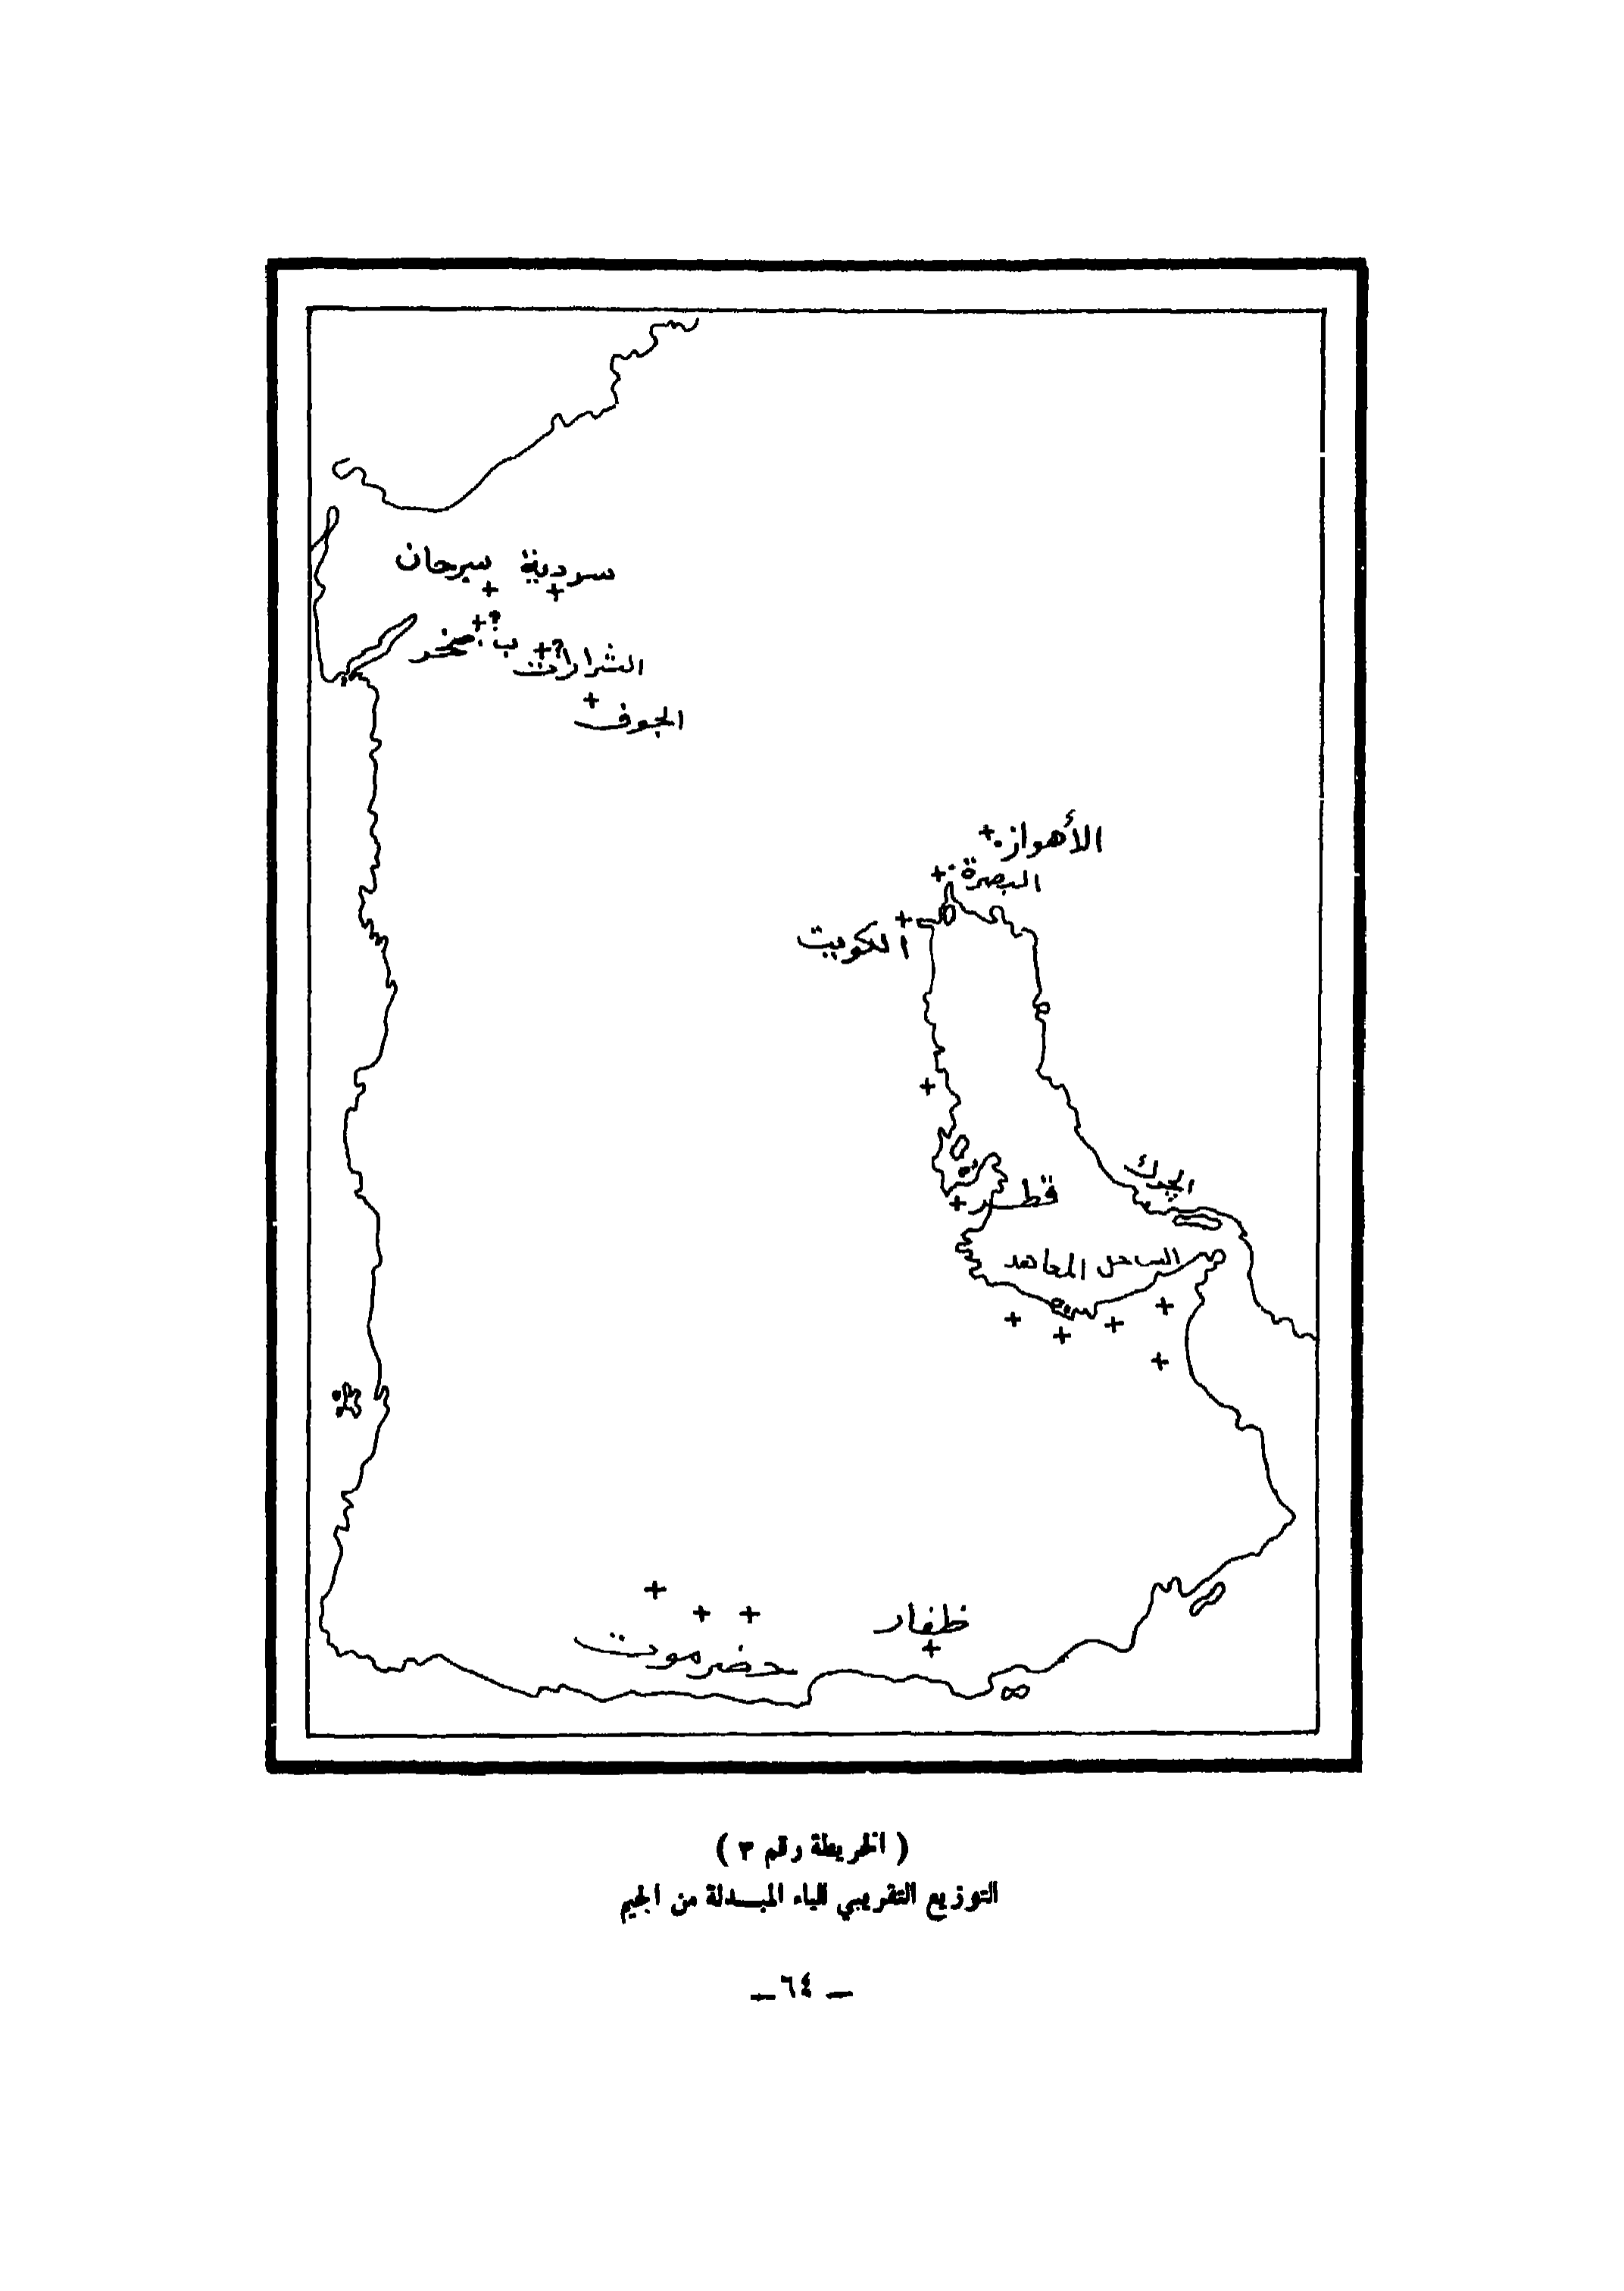 سردية سرحان
ب. صخر ؟
الشرارات ؟
الجوف
الأهواز
البصرة
الكويت
قطر
الساحل المعاهد
ظفار
حضرموت
( الخريطة رقم ٣ )
التوزيع التقريبي للياء المبدلة من الجيم
— ٦٤ —